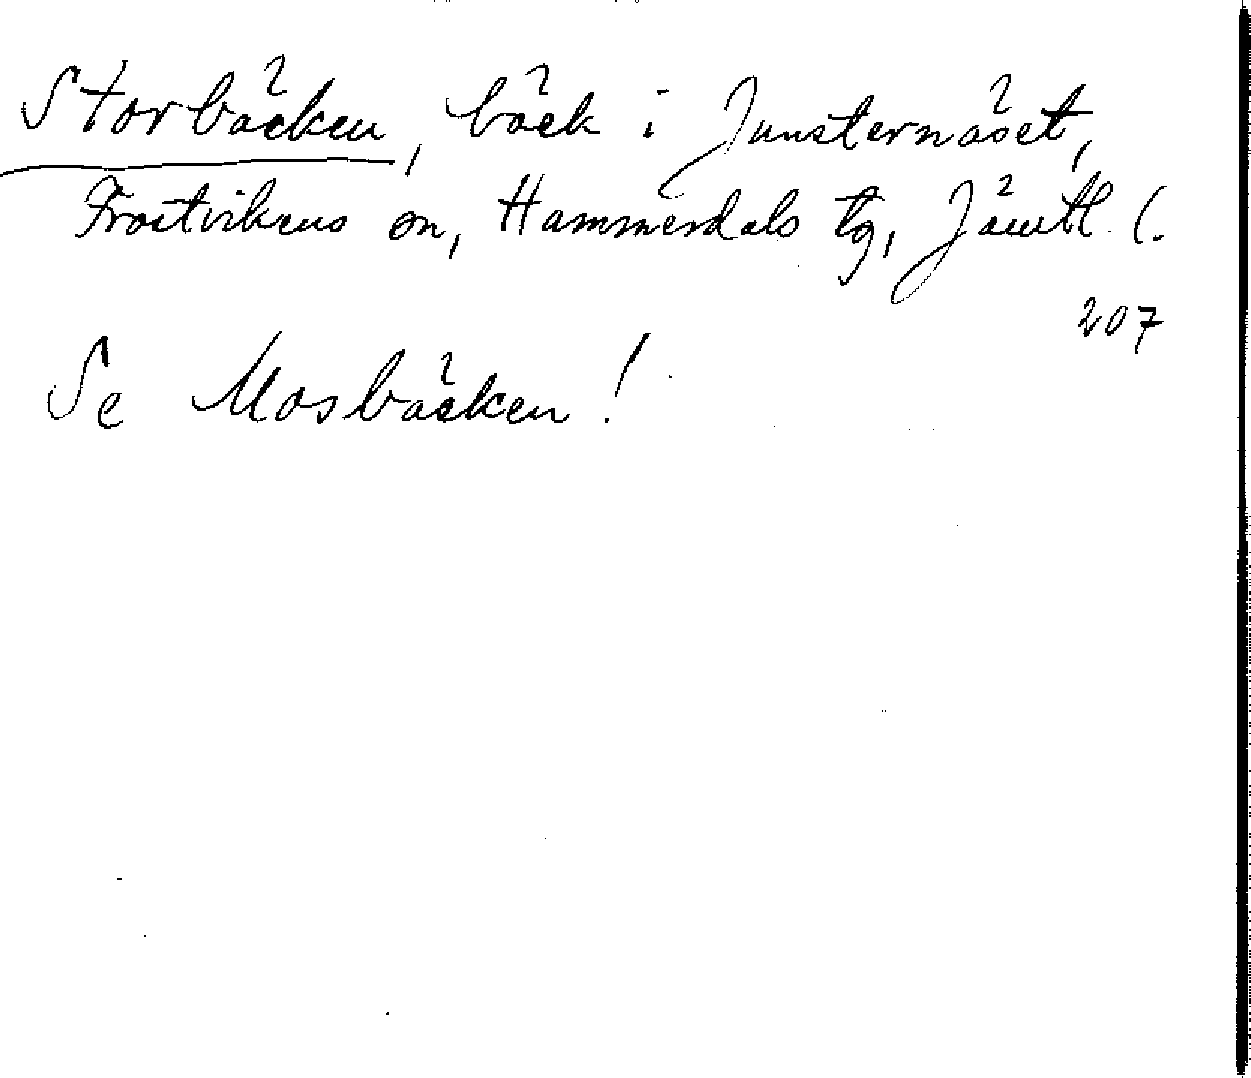 Storbäcken, bäck i Junsternäset,
Frostvikens sn, Hammerdals tg, Jämtl. l.
207
Se Mosbäcken!